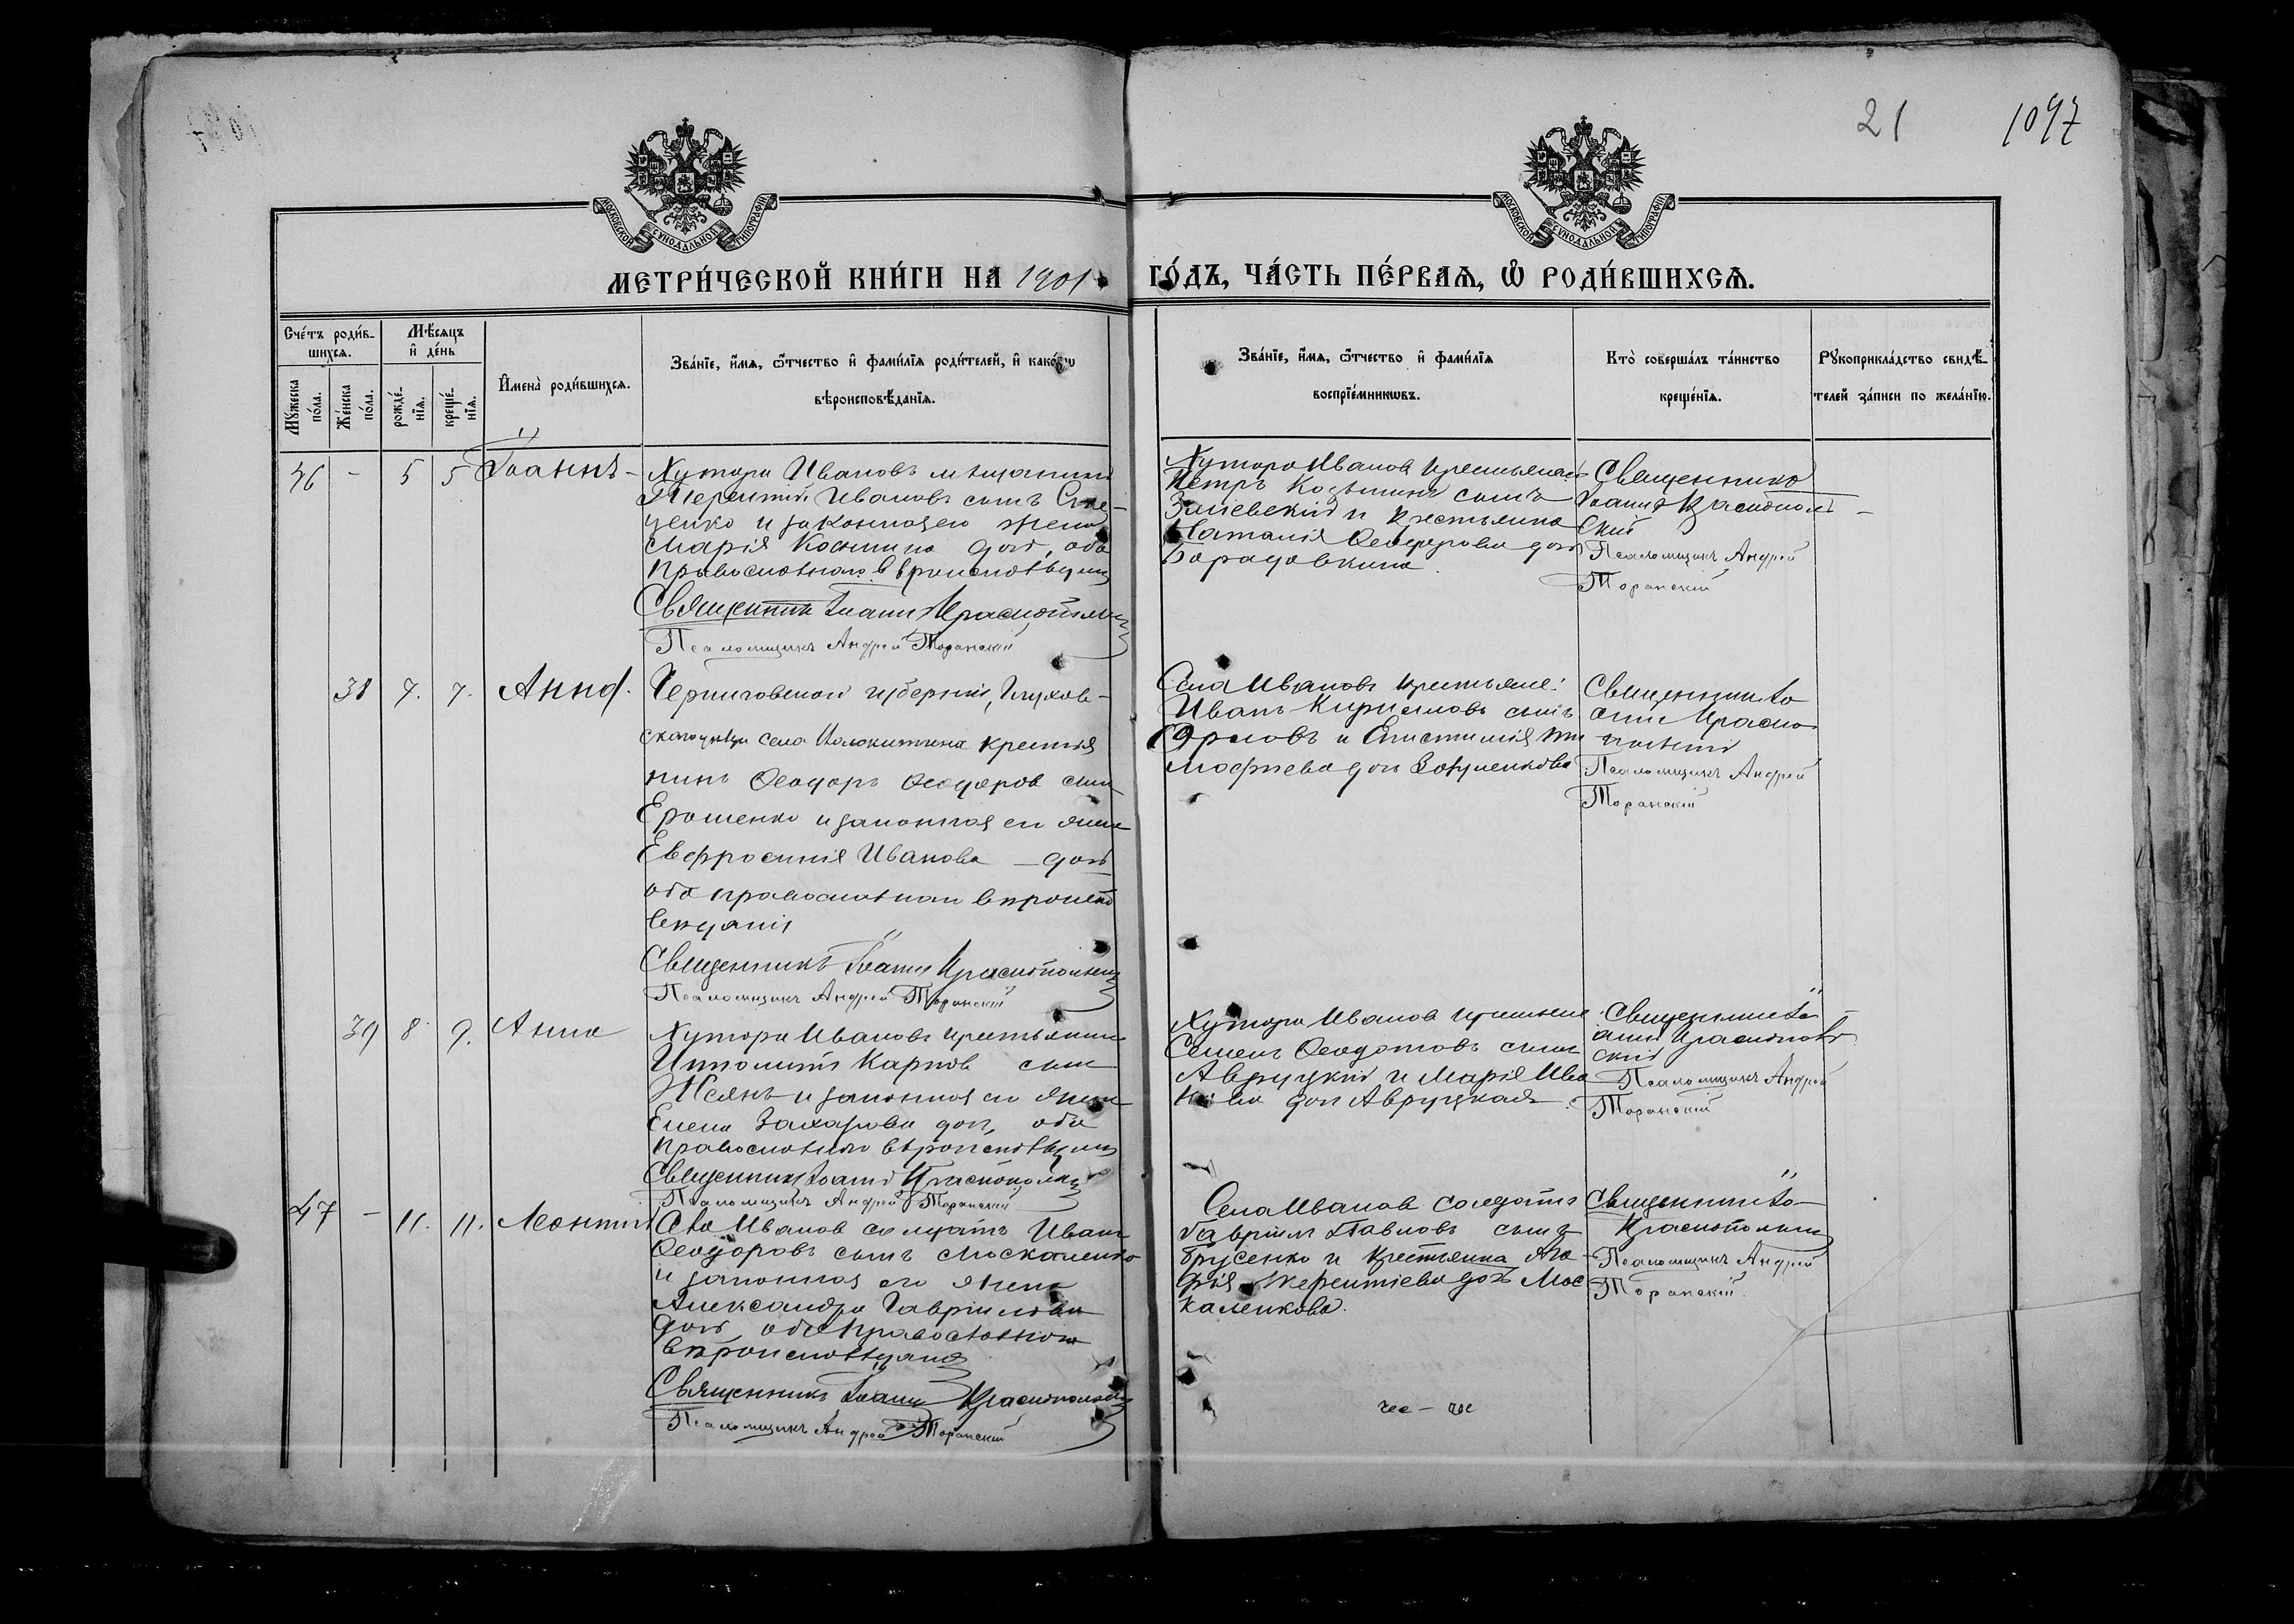 21
1097
МОСКОВСКОЙ СѴНОДАЛЬНОЙ ТИПОГРАФІИ
МОСКОВСКОЙ СѴНОДАЛЬНОЙ ТИПОГРАФІИ
МЕТРИ́ЧЕСКОЙ КНИ́ГИ НА 1901
ГО́ДЪ, ЧА́СТЬ ПЕ́РВАѦ, Ѽ РОДИ́ВШИХСѦ.
Сче́тъ роди́в-
шихсѧ.
Мѣ́сѧцъ
и҆ де́нь
Мꙋ́жеска
по́ла.
Же́нска
по́ла.
рожде́-
нїѧ.
креще́-
нїѧ.
И҆мена̀ роди́вшихсѧ.
Зва́нїе, и҆́мѧ, ѻ҆́тчество и҆ фами́лїѧ роди́телей, и҆ како́гѡ
вѣроисповѣ́данїѧ.
Зва́нїе, и҆́мѧ, ѻ҆́тчество и҆ фами́лїѧ
воспрїе́мникѡвъ.
Кто̀ соверша́лъ та́инство
креще́нїѧ.
Рꙋкоприкла́дство свидѣ́-
телей за́писи по жела́нїю.
46 - 5 5 Іоаннъ -
Хутора Ивановъ мѣщанинъ
Терентій Ивановъ сынъ
ценко и законная его жена
Марія Косьмина доч, оба
православнаго вѣроисповѣданія
Священникъ Іоаннъ Краснопольскій
Псаломщикъ Андрей Торанскій
Хутора Иванов крестьянинъ
Петръ Козьминъ сынъ
и крестьянка
Наталія Ѳеодорова доч
Бородавкина
Священникъ
Іоаннъ Краснополь
скій
Псаломщикъ Андрей
Торанскій
38 7. 7. Анна.
Черниговской губерніи, Глухов-
скаго уѣзда села крестья
нинъ Ѳеодоръ Ѳеодоров сын
Ерошенко и законная его жена
Евфросинія Иванова - доч
оба православнаго вѣроиспо
вѣданія
Священникъ Іоаннъ Краснопольскій
Псаломщикъ Андрей Торанскій
Села Ивановъ крестьяне:
Иванъ Кирилловъ сынъ
Орловъ и Епистимія Ти
мофеева доч
Священникъ Іо
аннъ Красно
польскій
Псаломщикъ Андрей
Торанскій
39 8 9. Анна
Хутора Ивановъ крестьянинъ
Ипполитъ Карпов сын
и законная его жена
Елена Захарова доч, оба
православнаго вѣроисповѣданія
Священникъ Іоаннъ Краснопольскій
Псаломщикъ Андрей Торанскій
Хутора Иванов крестьяне
Семенъ Ѳеодотовъ сынъ
Авруцкій и Марія Ива
нова доч Авруцкая
Священникъ Іо
аннъ Краснополь
скій
Псаломщикъ Андрей
Торанскій
47 - 11. 11. Леонтій
Села Иванов солдатъ Иванъ
Ѳеодоровъ сынъ Москаленко
и законная его жена
Александра Гавріилова
доч оба православнаго
вѣроисповѣданія
Священникъ Іоаннъ Краснопольскій
Псаломщикъ Андрей Торанскій
Села Иванов солдатъ
Гавріилъ Павловъ сынъ
Брусенко и крестьянка
Терентіева доч Мос
каленкова.
Священникъ Іо
Краснопольскій
Псаломщикъ Андрей
Торанскій.